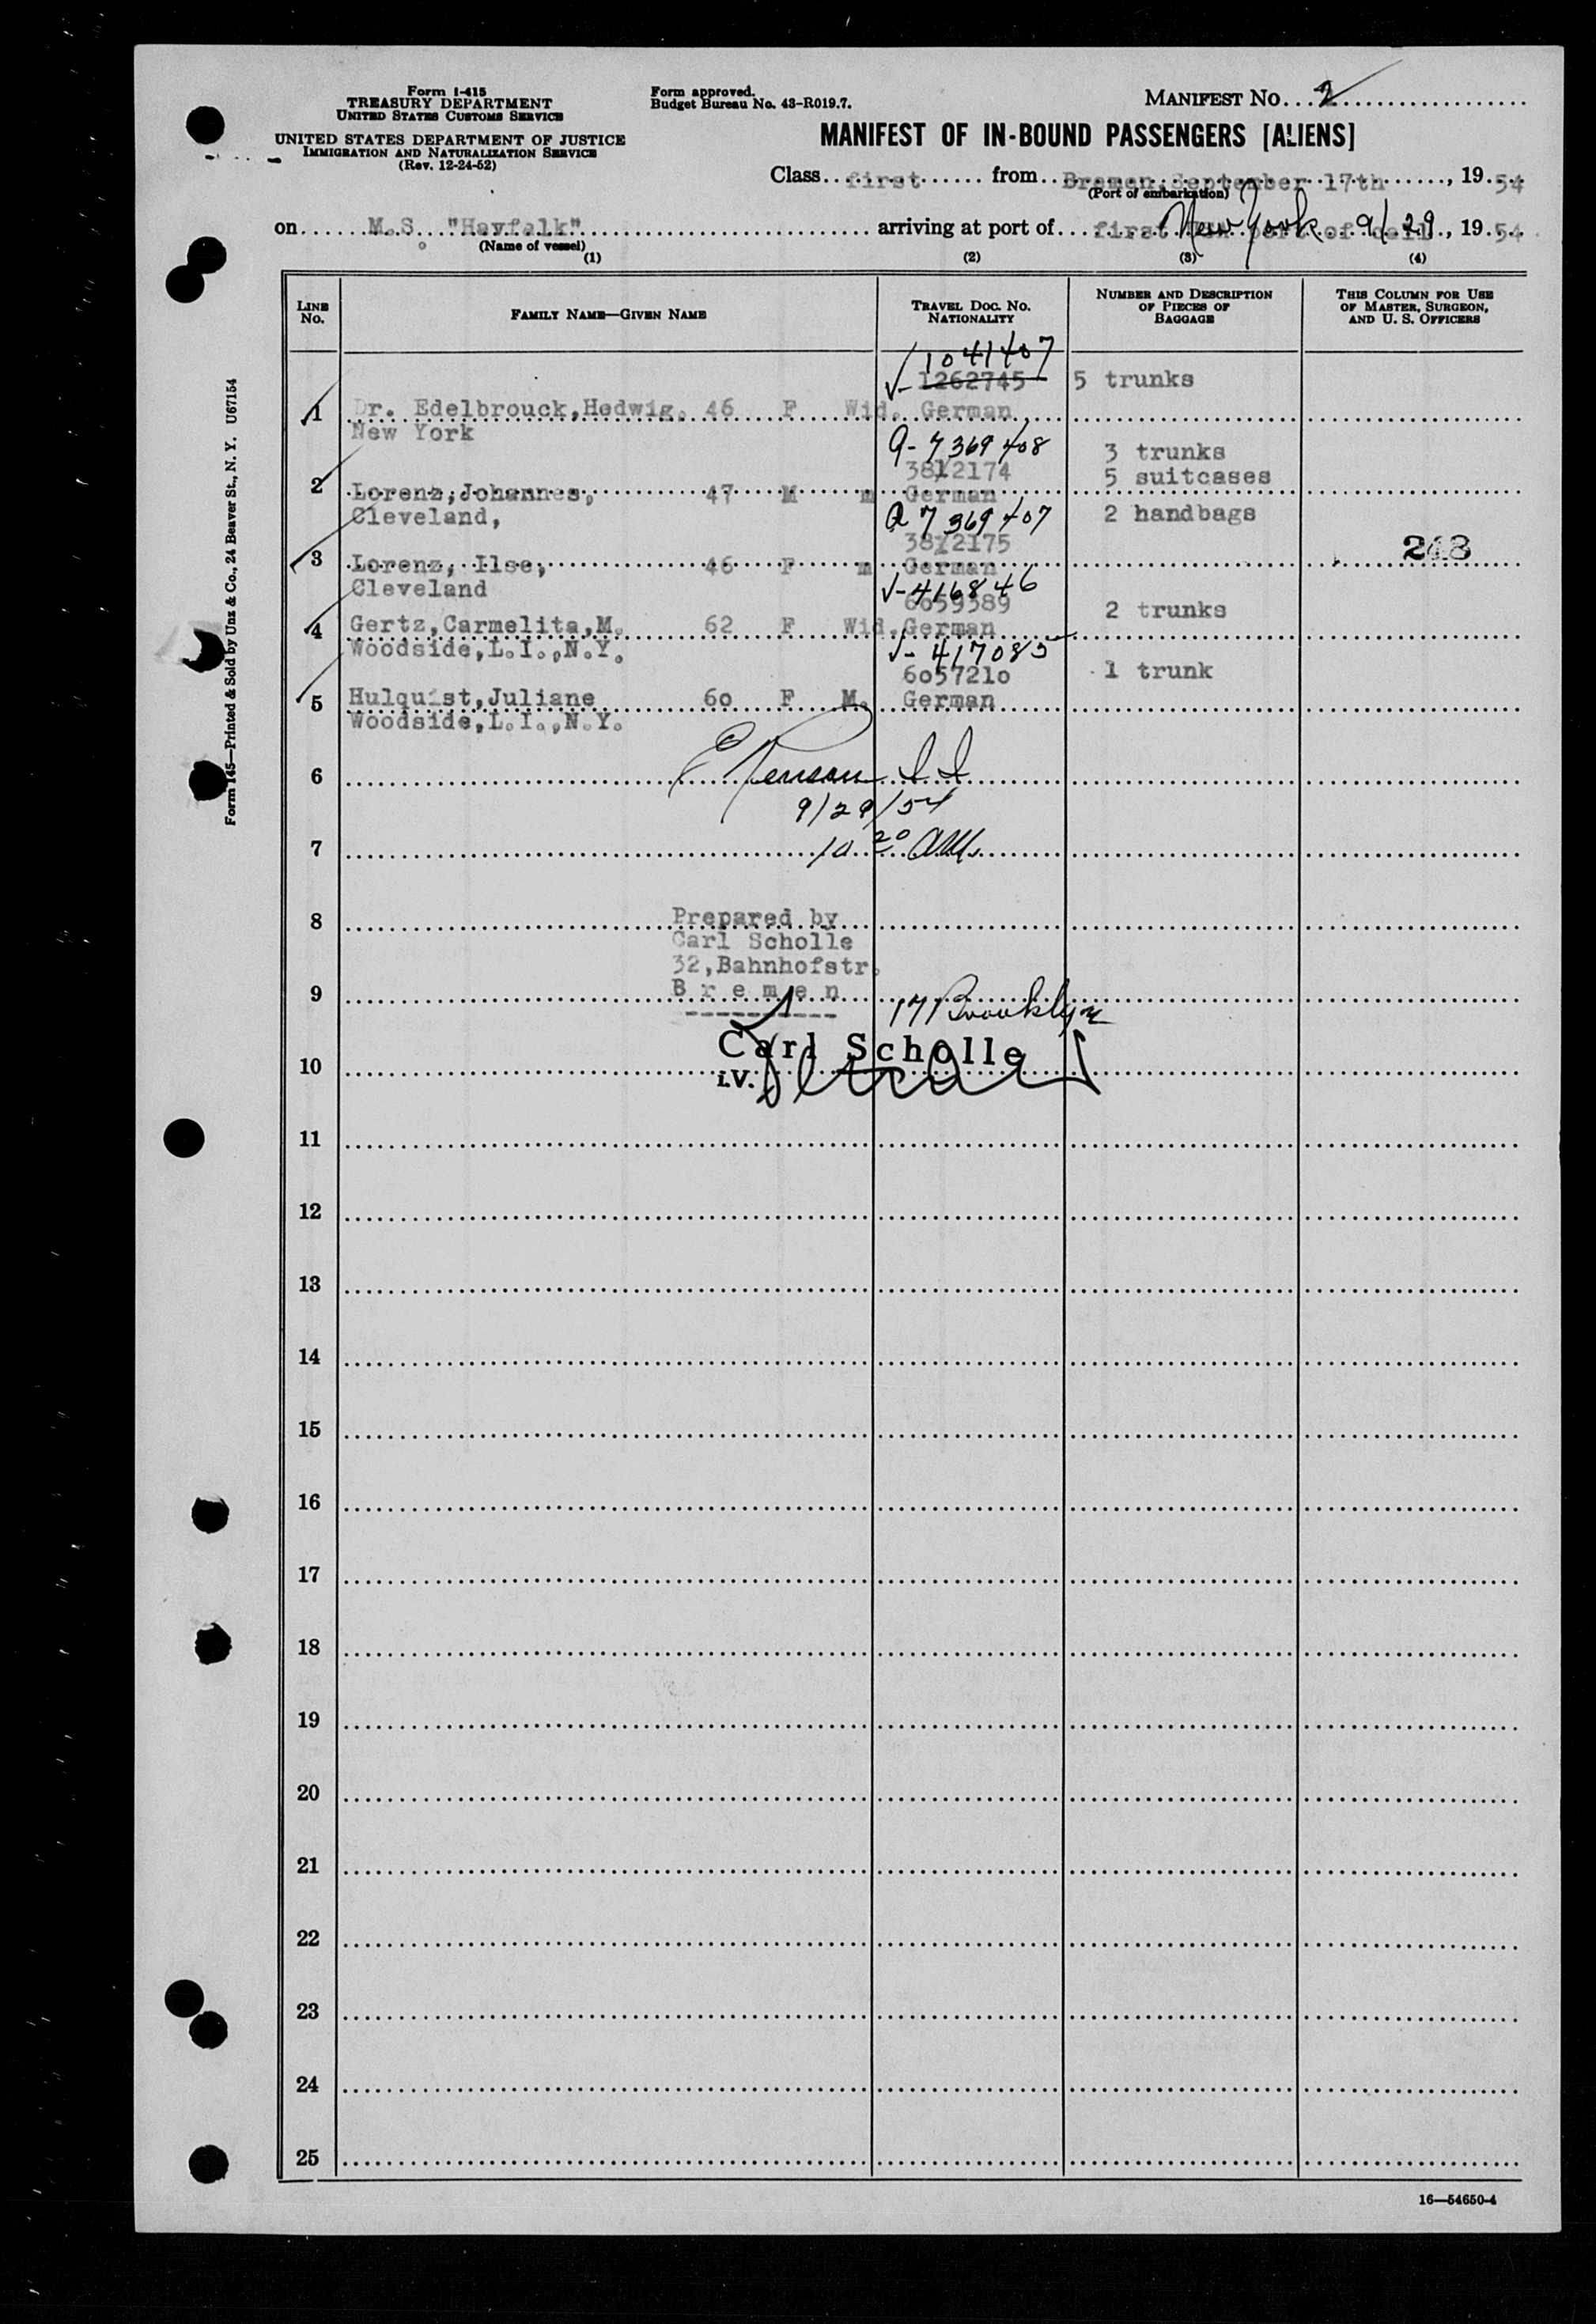 Form I-415
TREASURY DEPARTMENT
UNITED STATES CUSTOMS SERVICE
UNITED STATES DEPARTMENT OF JUSTICE
IMMIGRATION AND NATURALIZATION SERVICE
(Rev. 12-24-52)
Form approved.
Budget Bureau No. 43-R019.7.
MANIFEST NO. 2
MANIFEST OF IN-BOUND PASSENGERS [ALIENS]
Class first from Bremen, September 17th, 19 54
(Port of embarkation)
on M.S. "Havfalk" arriving at port of first port of call New York 9/29, 19 54
(Name of vessel)
(1) (2) (3) (4)
LINE NO.
FAMILY NAME—GIVEN NAME
TRAVEL DOC. NO. NATIONALITY
NUMBER AND DESCRIPTION OF PIECES OF BAGGAGE
THIS COLUMN FOR USE OF MASTER, SURGEON, AND U. S. OFFICERS
1041407
V- 1262745 5 trunks
1 Dr. Edelbrouck, Hedwig. 46 F Wid. German
New York
A- 7369408
3812174 3 trunks
5 suitcases
2 Lorenz, Johannes, 47 M m German
Cleveland, 2 handbags
A 7369407
3812175
3 Lorenz, Ilse, 46 F m German 248
Cleveland
V- 416846
6059389 2 trunks
4 Gertz, Carmelita, M. 62 F Wid. German
Woodside, L.I., N.Y.
V- 417085
6057210 1 trunk
5 Hulquist, Juliane 60 F M. German
Woodside, L.I., N.Y.
6
9/29/54
7 10 20 AM.
8 Prepared by
Carl Scholle
32, Bahnhofstr.
9 B r e m e n
17 Brooklyn
Carl Scholle
10 i.V.
11
12
13
14
15
16
17
18
19
20
21
22
23
24
25
16—54650-4
Form 145—Printed & Sold by Unz & Co., 24 Beaver St., N. Y. U67154